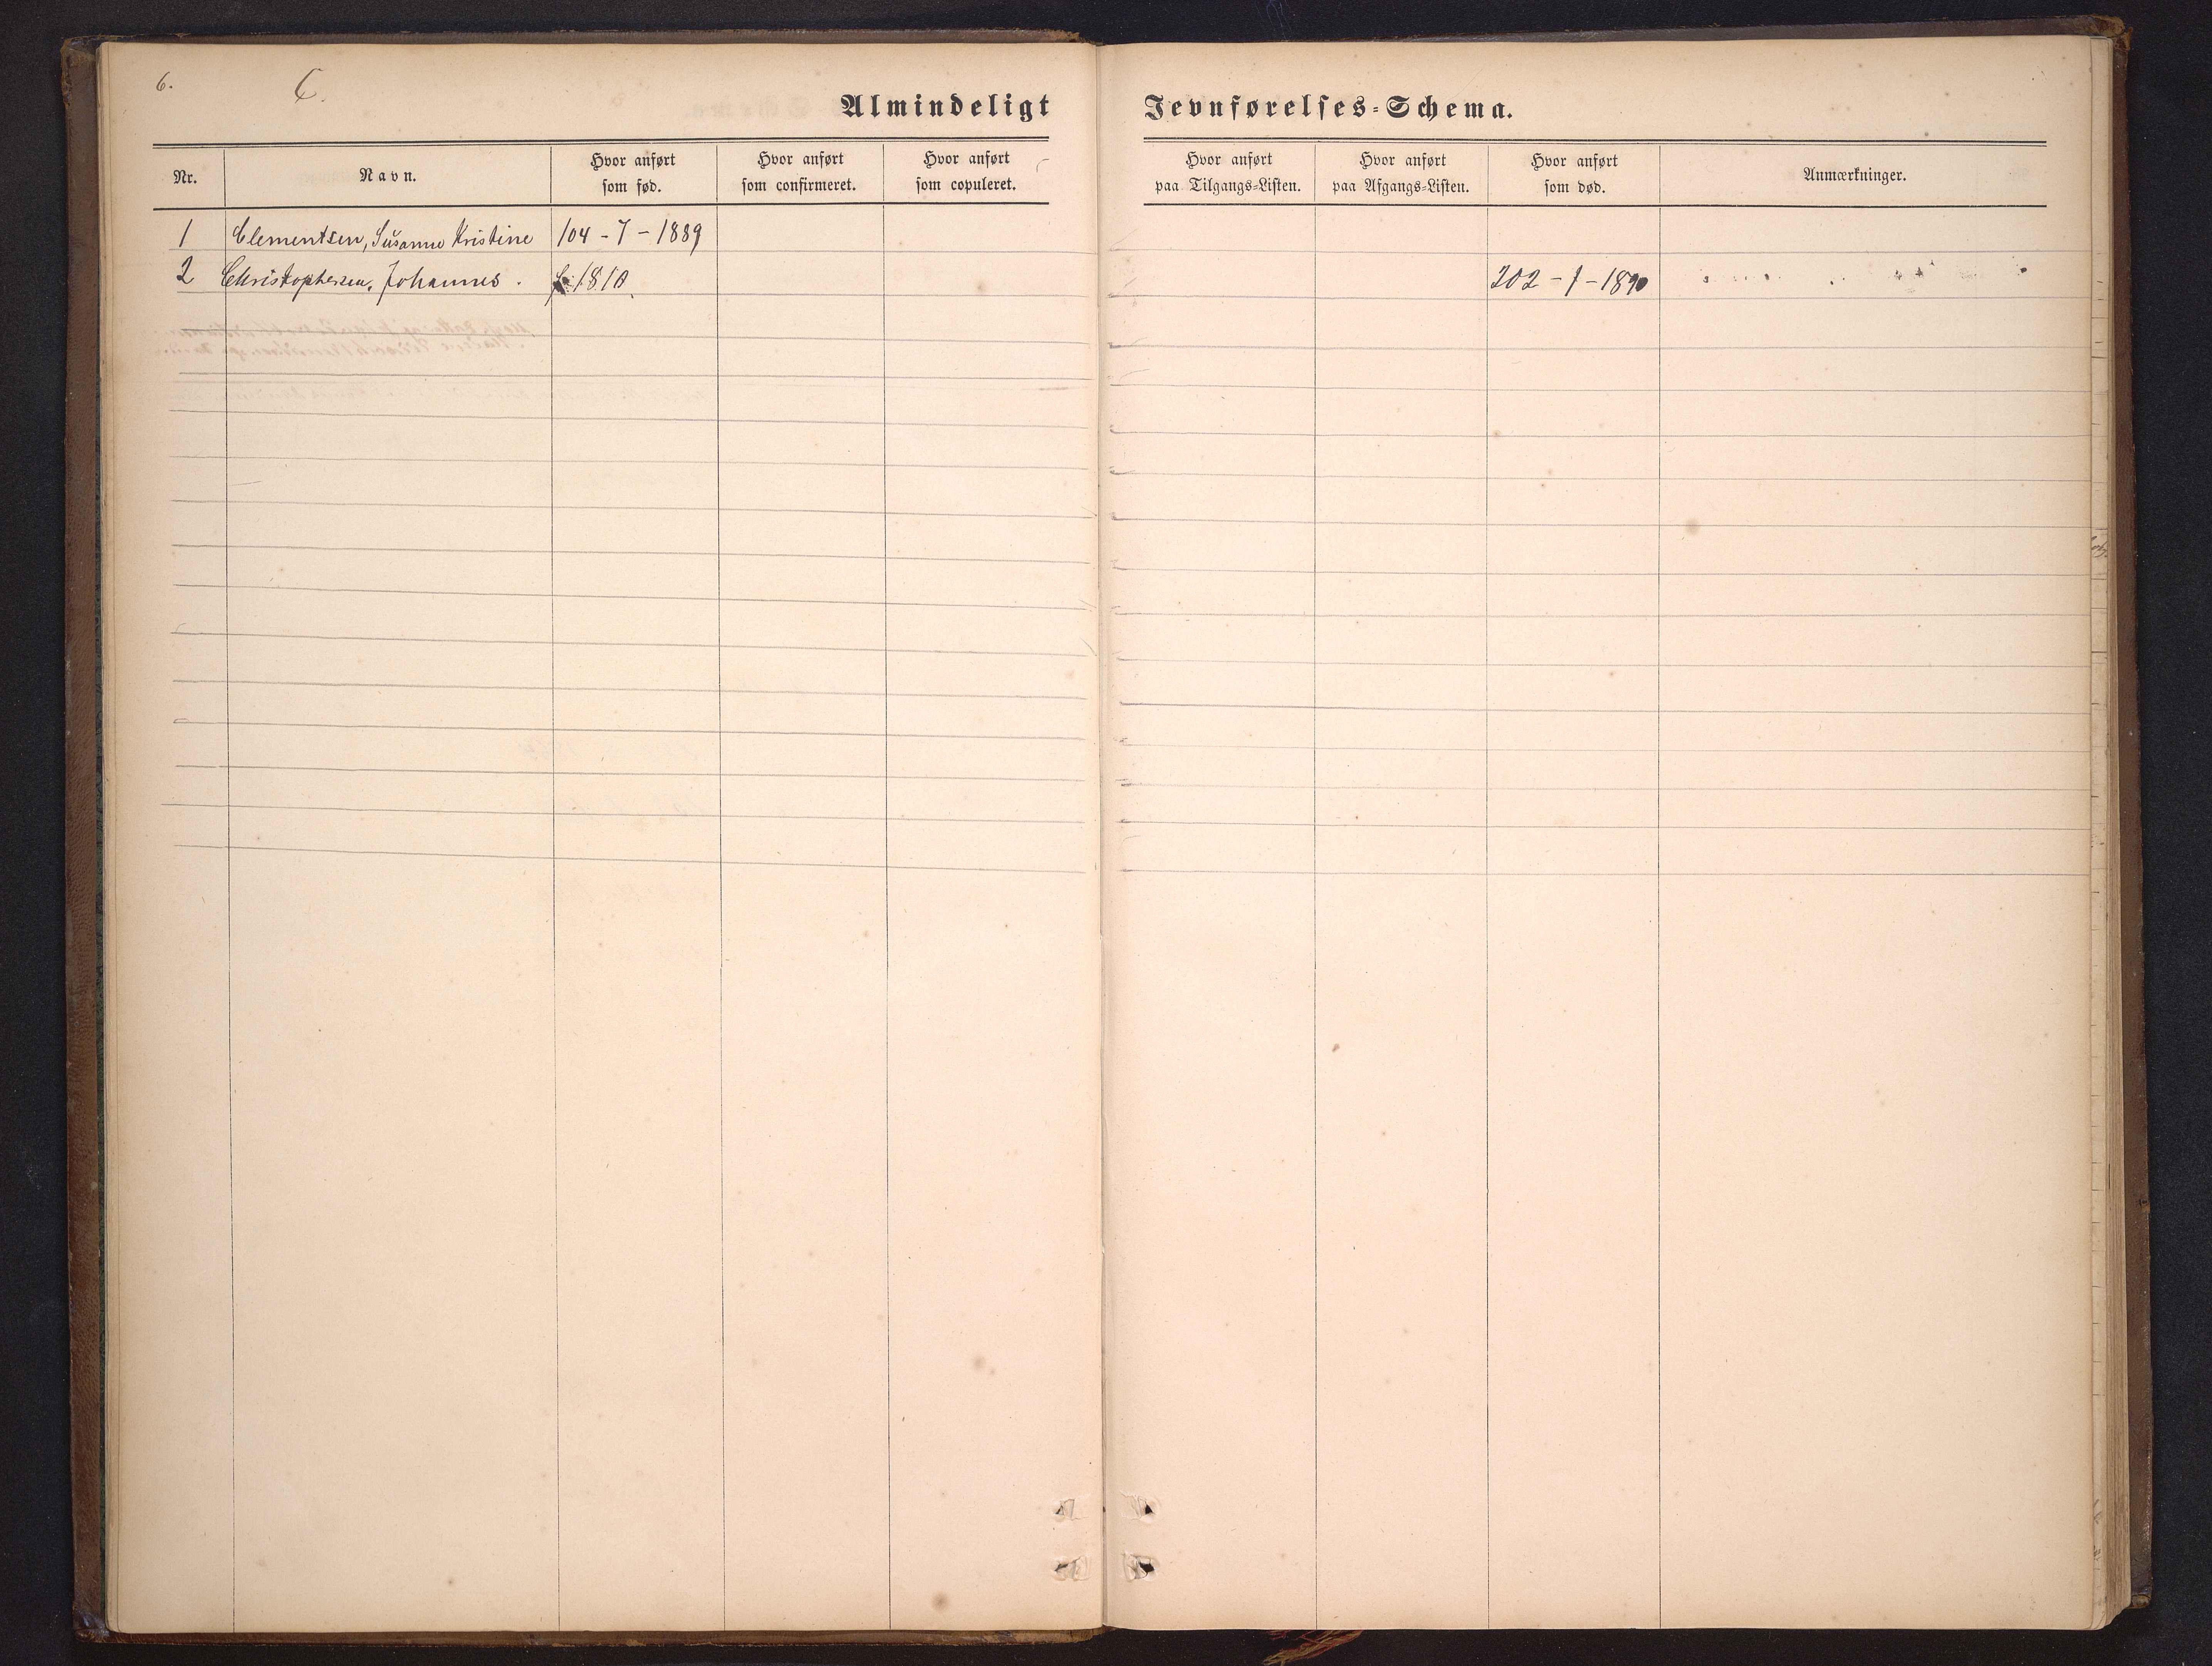 6.
C.
Almindeligt Jevnførelses-Schema.
Nr. Navn. Hvor anført som fød. Hvor anført som confirmeret. Hvor anført som copuleret. Hvor anført paa Tilgangs-Listen. Hvor anført paa Afgangs-Listen. Hvor anført som død. Anmærkninger.
1 Clementsen, Susanne Kristine 104 - 7 - 1889
2 Christophersen, Johannes. f. 1810. 202 - 1 - 1890